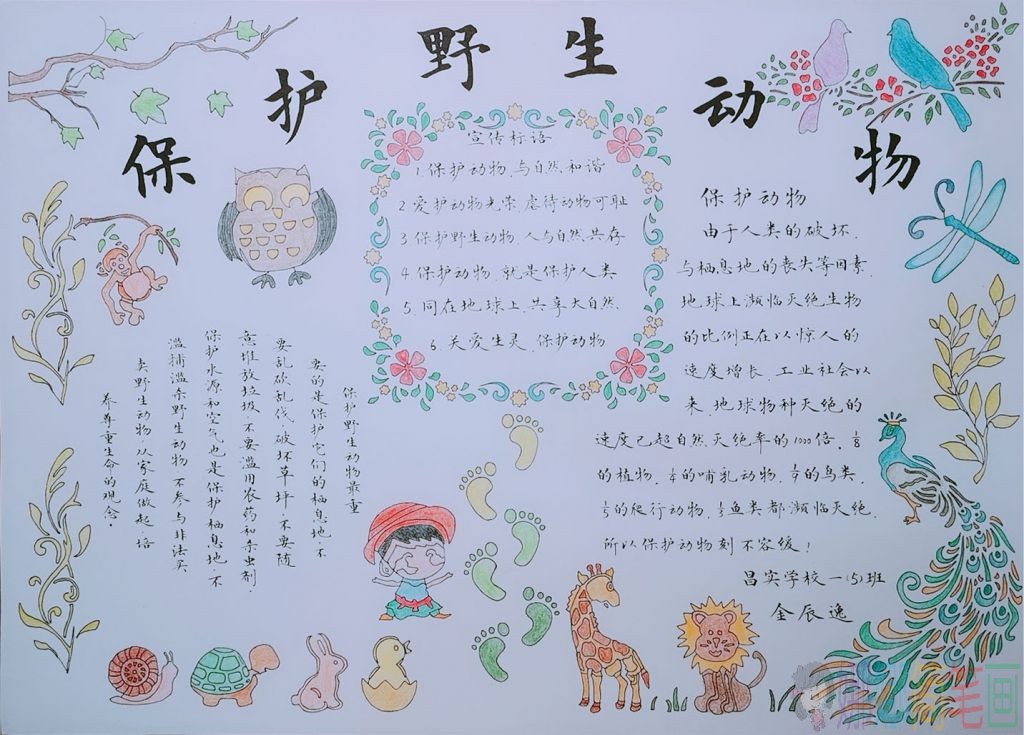 保护野生动物
宣传标语
1.保护动物,与自然和谐
2.爱护动物光荣,虐待动物可耻
3.保护野生动物,人与自然共存
4.保护动物,就是保护人类
5.同在地球上,共享大自然
6.关爱生灵,保护动物
保护动物
由于人类的破坏,
与栖息地的丧失等因素,
地球上濒临灭绝生物
的比例正在以惊人的
速度增长,工业社会以
来,地球物种灭绝的
速度已超自然灭绝率的1000倍.1/8
的植物,1/4的哺乳动物,1/9的鸟类,
1/5的爬行动物,1/3鱼类都濒临灭绝,
所以保护动物刻不容缓!
昌实学校一(5)班
金辰逸
保护野生动物最重
要的是保护它们的栖息地.不
要乱砍乱伐,破坏草坪,不要随
意堆放垃圾,不要滥用农药和杀虫剂.
保护水源和空气也是保护栖息地,不
滥捕滥杀野生动物,不参与非法买
卖野生动物,从家庭做起,培
养尊重生命的观念.